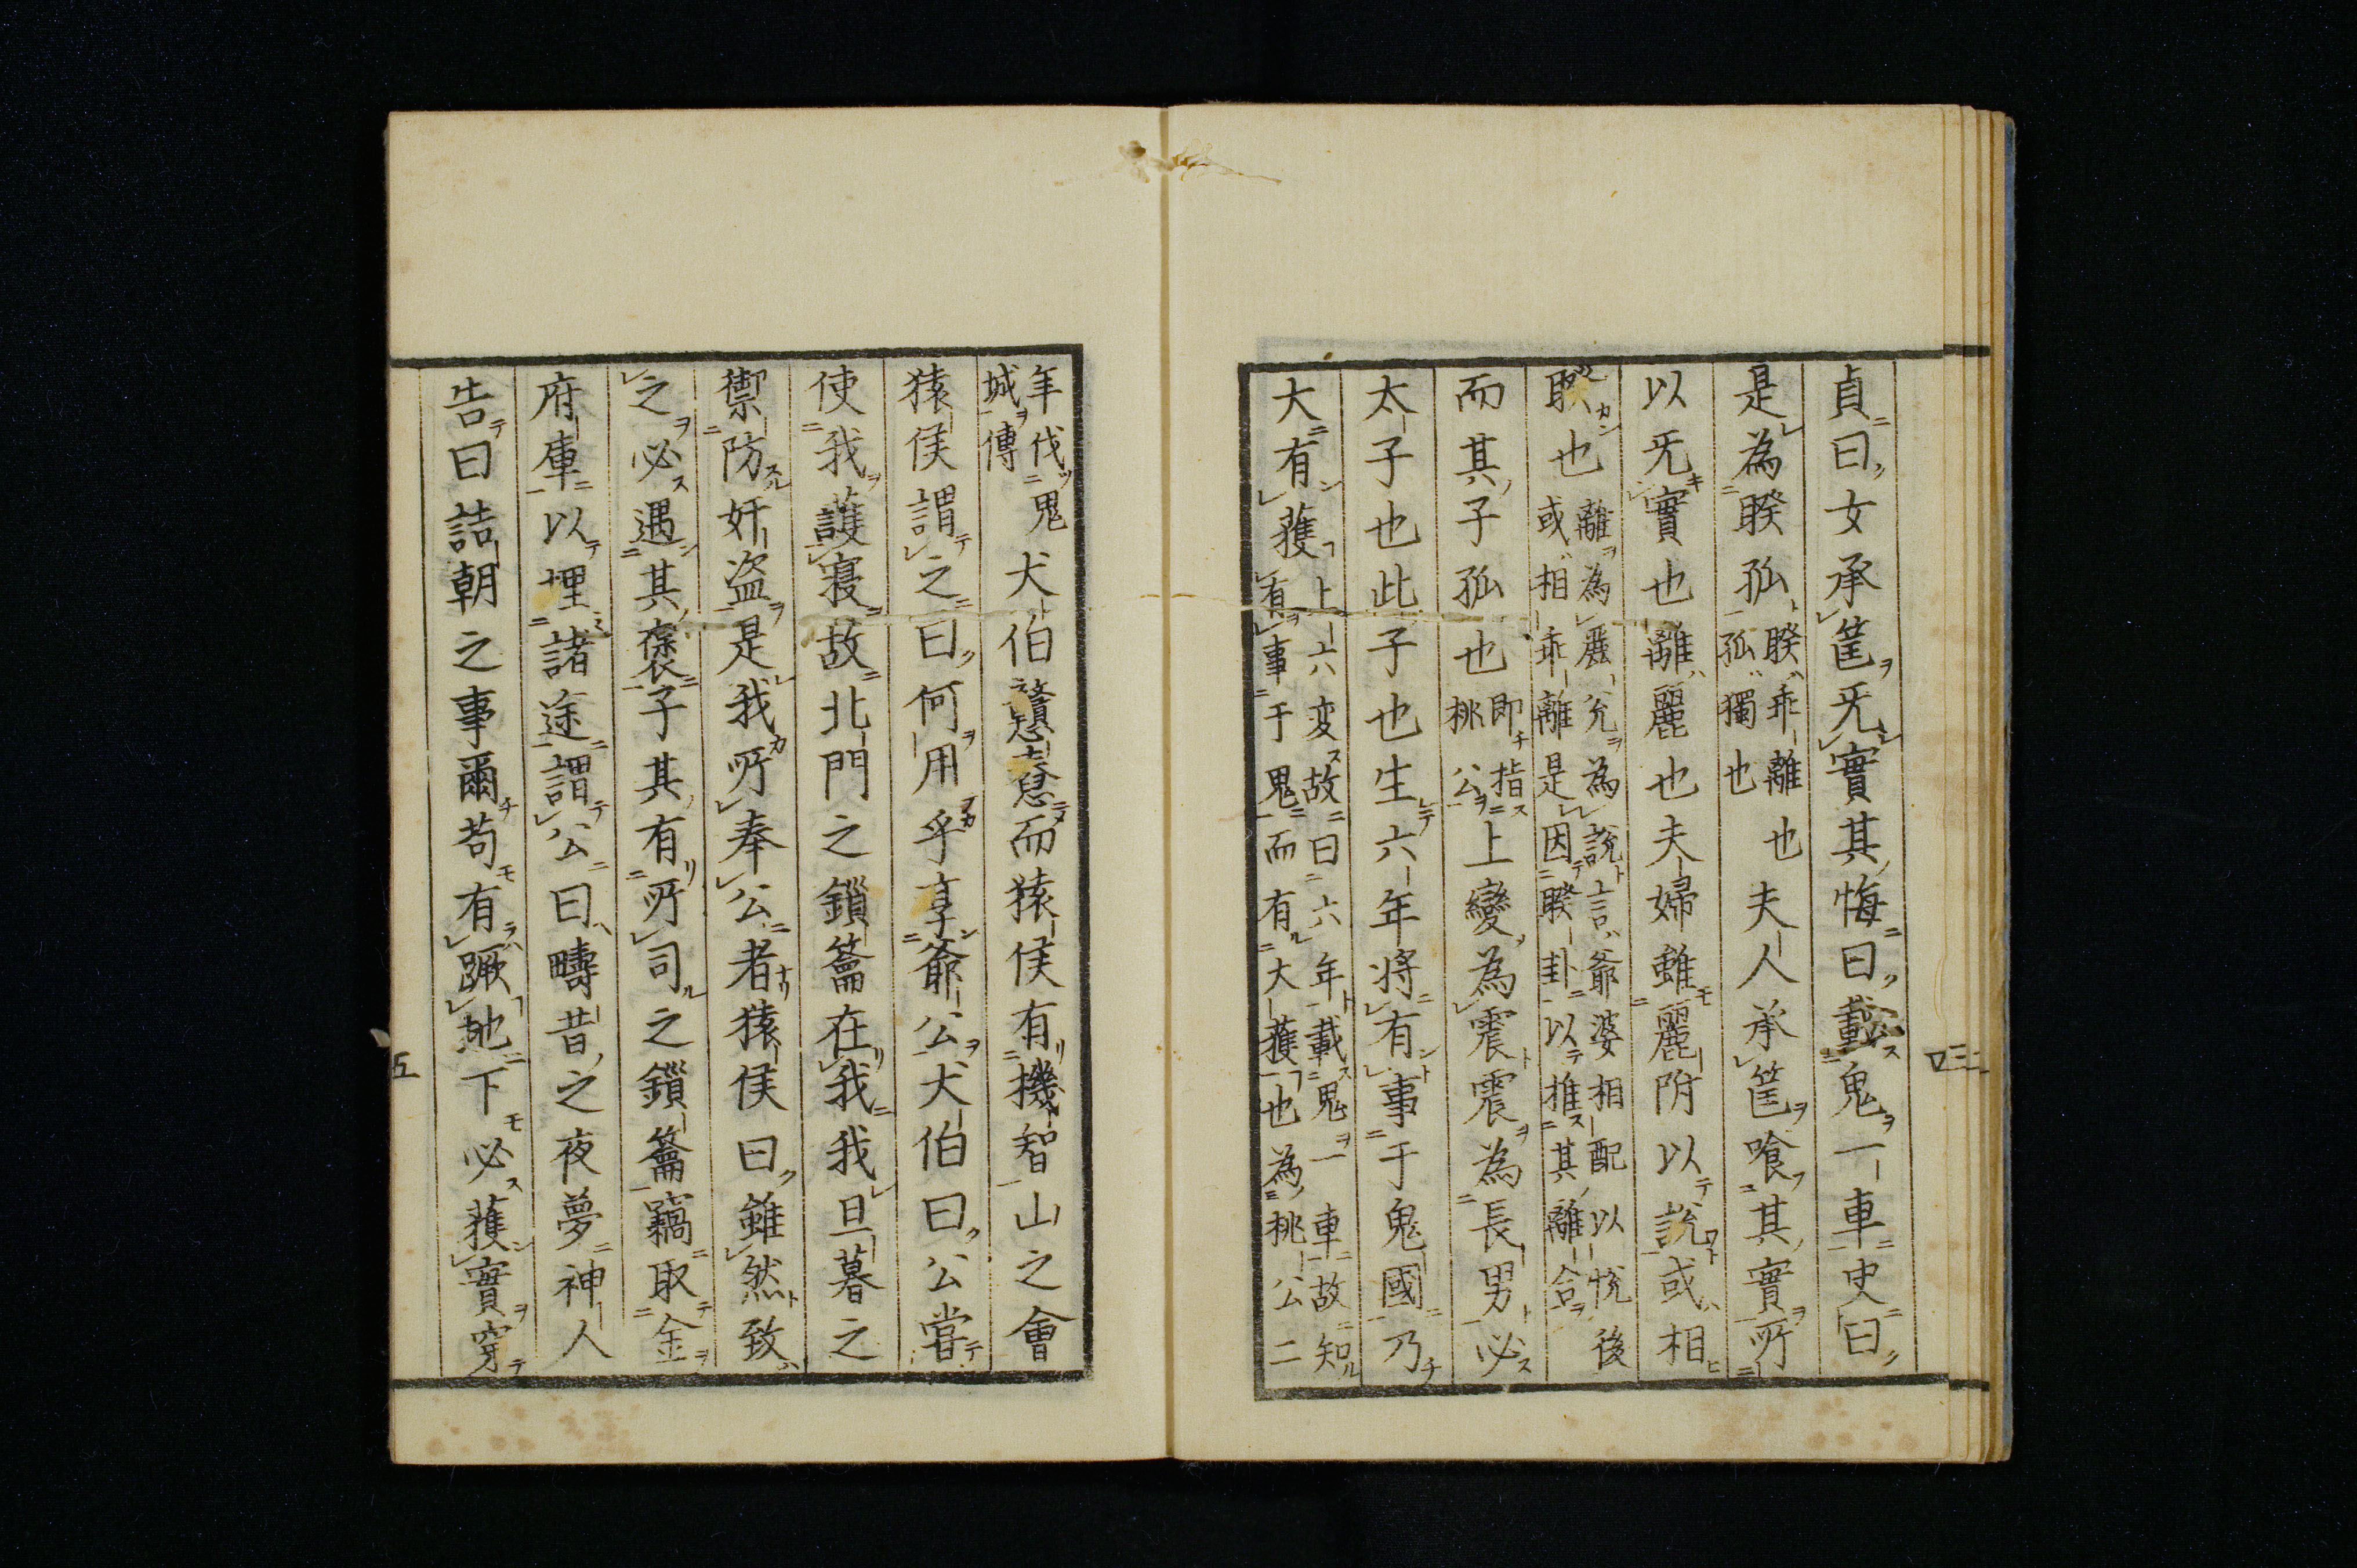 貞曰女承筐旡實其悔曰載鬼一車史曰
是為睽孤
睽乖離也
孤獨也
夫人承筐喰其實所
以旡實也離麗也夫婦雖麗附以說或相
睽也
離為麗兌為說言爺婆相配以悅後
或相乖離是因睽卦以推其離合
而其子孤也
即指
桃公
上變為震震為長男必
太子也此子也生六年将有事于鬼國乃
大有獲
上六変故曰六年載鬼一車故知
有事于鬼而有大獲也為桃公二
年伐鬼
城傳
犬伯戇而猿侯有機智山之會
猿侯謂之曰何用乎享爺公犬伯曰公嘗
使我護寝故北門之鎖籥在我我旦暮之
禦防奸盗是我所奉公者猿侯曰雖然致
之必遇其褒子其有所司之鎖籥竊取金
府庫以埋諸途謂公曰疇昔之夜夢神人
告曰詰朝之事爾苟有蹶地下必獲實穿
五